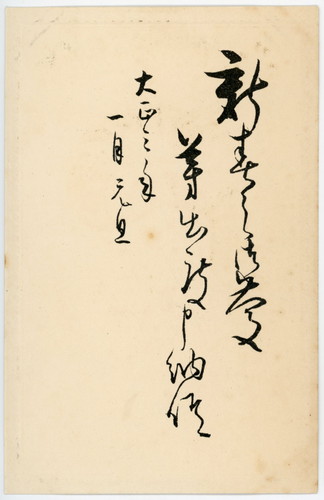 新春之御慶
芽出度申納候
大正三年
一月元旦